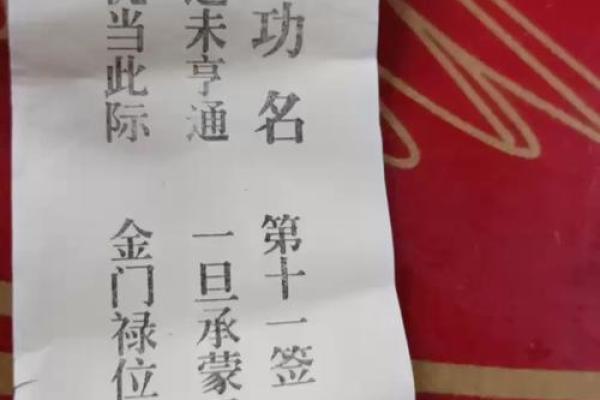 功名 第十一签
未亨通 一旦承蒙
当此际 金门禄位